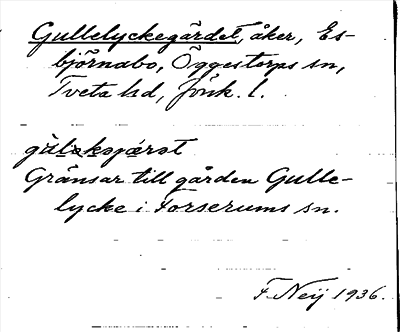 Gullelyckegärdet, åker, Es-
björnabo, Öggestorps sn,
Tveta hd, Jönk. l.
Gränsar till gården Gulle-
lycke i Forserums sn.
F Neij 1936.